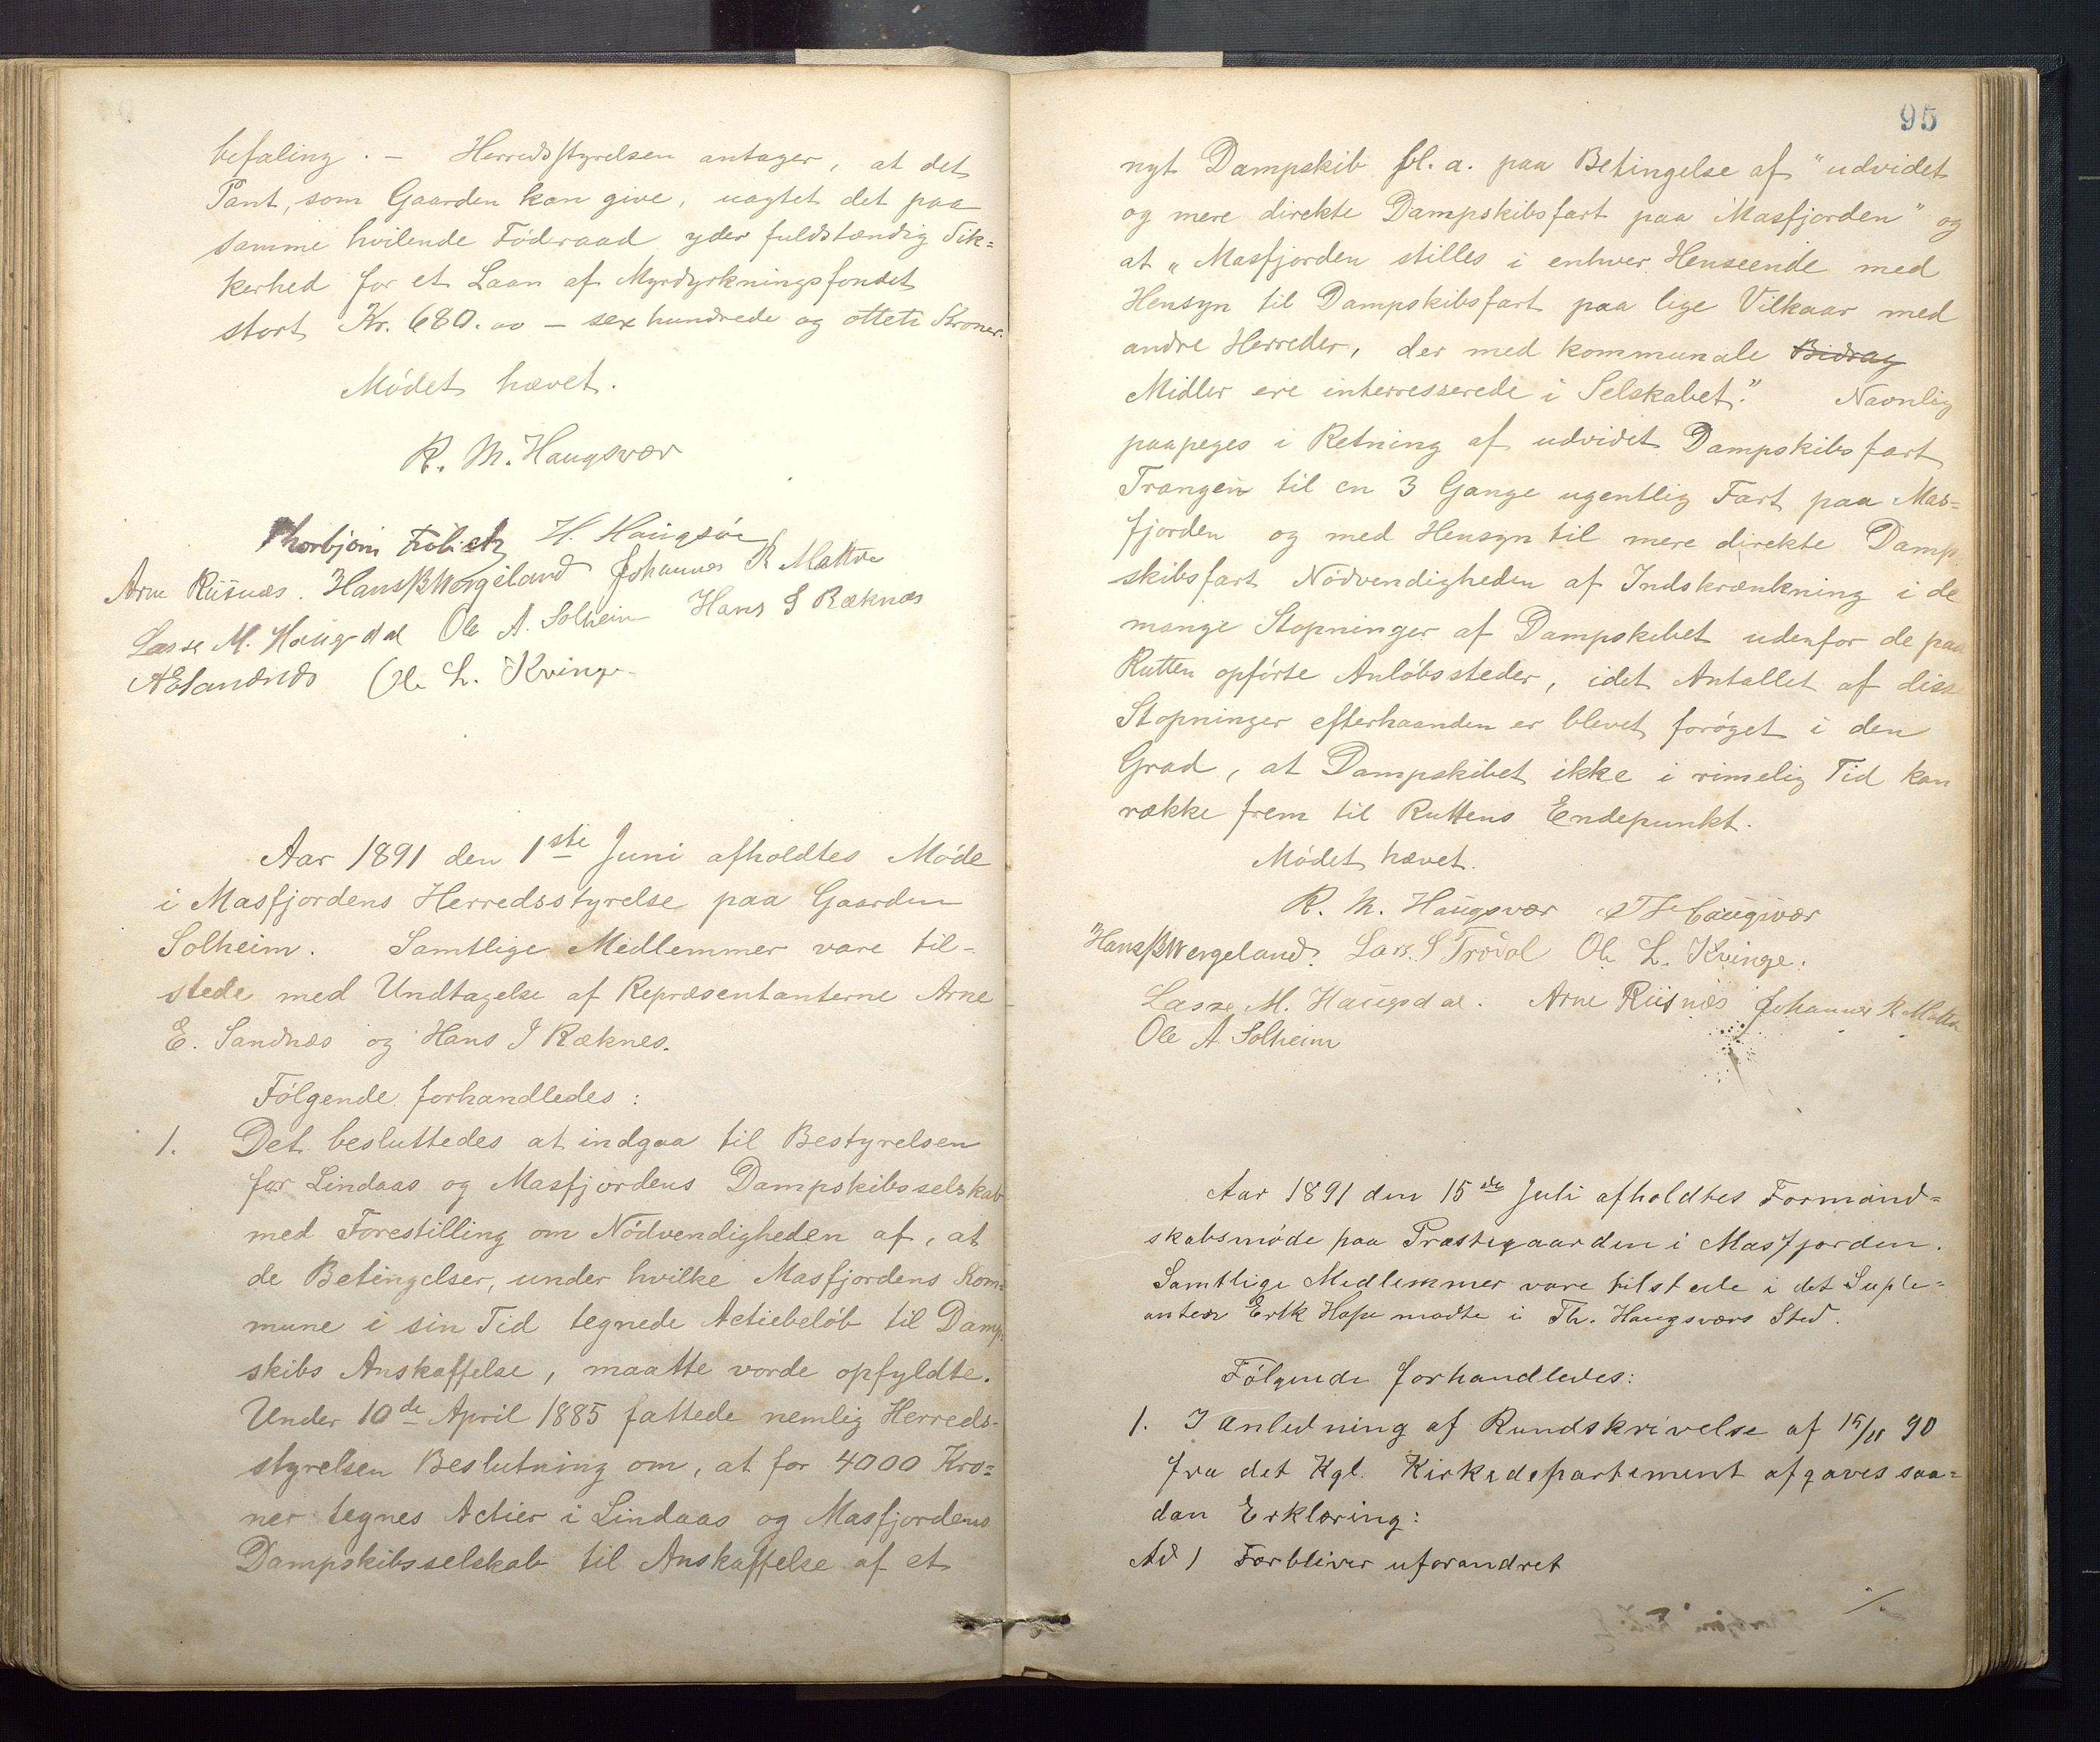 befaling. — Herredsstyrelsen antager, at det
Pant, som Gaarden kan give, uagtet det paa
samme hvilende Föderaad yder fuldstændig Sik=
kerhed for et Laan af Myrdyrkningsfondet
stort Kr. 680.00 — sex hundrede og otteti Kroner.
Mödet hævet.
R. M. Haugsvær
Thorbjörn H. Haugsöe
Arne Riisnæs. Hans B Wergeland Johannes R Matre
Lasse M. Haugsdal Ole A. Solheim Hans J Ræknæs
AESandnæs Ole L. Kvinge.
Aar 1891 den 1ste Juni afholdtes Möde
i Masfjordens Herredsstyrelse paa Gaarden
Solheim. Samtlige Medlemmer vare til-
stede med Undtagelse af Repræsentanterne Arne
E. Sandnæs og Hans J Ræknes.
Fölgende forhandledes:
1. Det besluttedes at indgaa til Bestyrelsen
for Lindaas og Masfjordens Dampskibsselskab
med Forestilling om Nödvendigheden af, at
de Betingelser, under hvilke Masfjordens Kom=
mune i sin Tid tegnede Actiebelöb til Damp=
skibs Anskaffelse, maatte vorde opfyldte.
Under 10de April 1885 fattede nemlig Herreds-
styrelsen Beslutning om, at for 4000 Kro=
ner tegnes Actier i Lindaas og Masfjordens
Dampskibsselskab til Anskaffelse af et
95
nyt Dampskib bl. a. paa Betingelse af "udvidet
og mere direkte Dampskibsfart paa Masfjorden" og
at „Masfjorden stilles i enhver Henseende med
Hensyn til Dampskibsfart paa lige Vilkaar med
andre Herreder, der med kommunale Bidrag
Midler ere interresserede i Selskabet." Navnlig
paapeges i Retning af udvidet Dampskibsfart
Trangen til en 3 Gange ugentlig Fart paa Mas=
fjorden og med Hensyn til mere direkte Damp
skibsfart Nödvendigheden af Indskrænkning i de
mange Stopninger af Dampskibet udenfor de paa
Rutten opförte Anlöbssteder, idet Antallet af disse
Stopninger efterhaanden er blevet foröget i den
Grad, at Dampskibet ikke i rimelig Tid kan
række frem til Ruttens Endepunkt.
Mödet hævet.
R. M. Haugsvær Th Haugsvær
Hans B Wergeland. Lars S Trödal Ole L. Kvinge.
Lasse M. Haugsdal. Arne Riisnæs Johannes R Matre
Ole A Solheim
Aar 1891 den 15de Juli afholdtes Formand=
skabsmöde paa Præstegaarden i Masfjorden.
Samtlige Medlemmer vare tilstede i det Suple=
anten Erik Hope mödte i Th. Haugsværs Sted.
Fölgende forhandledes:
1. I Anledning af Rundskrivelse af 15/11 90
fra det Kgl. Kirkedepartement afgaves saa=
dan Erklæring:
Ad 1 Forbliver uforandret
./.